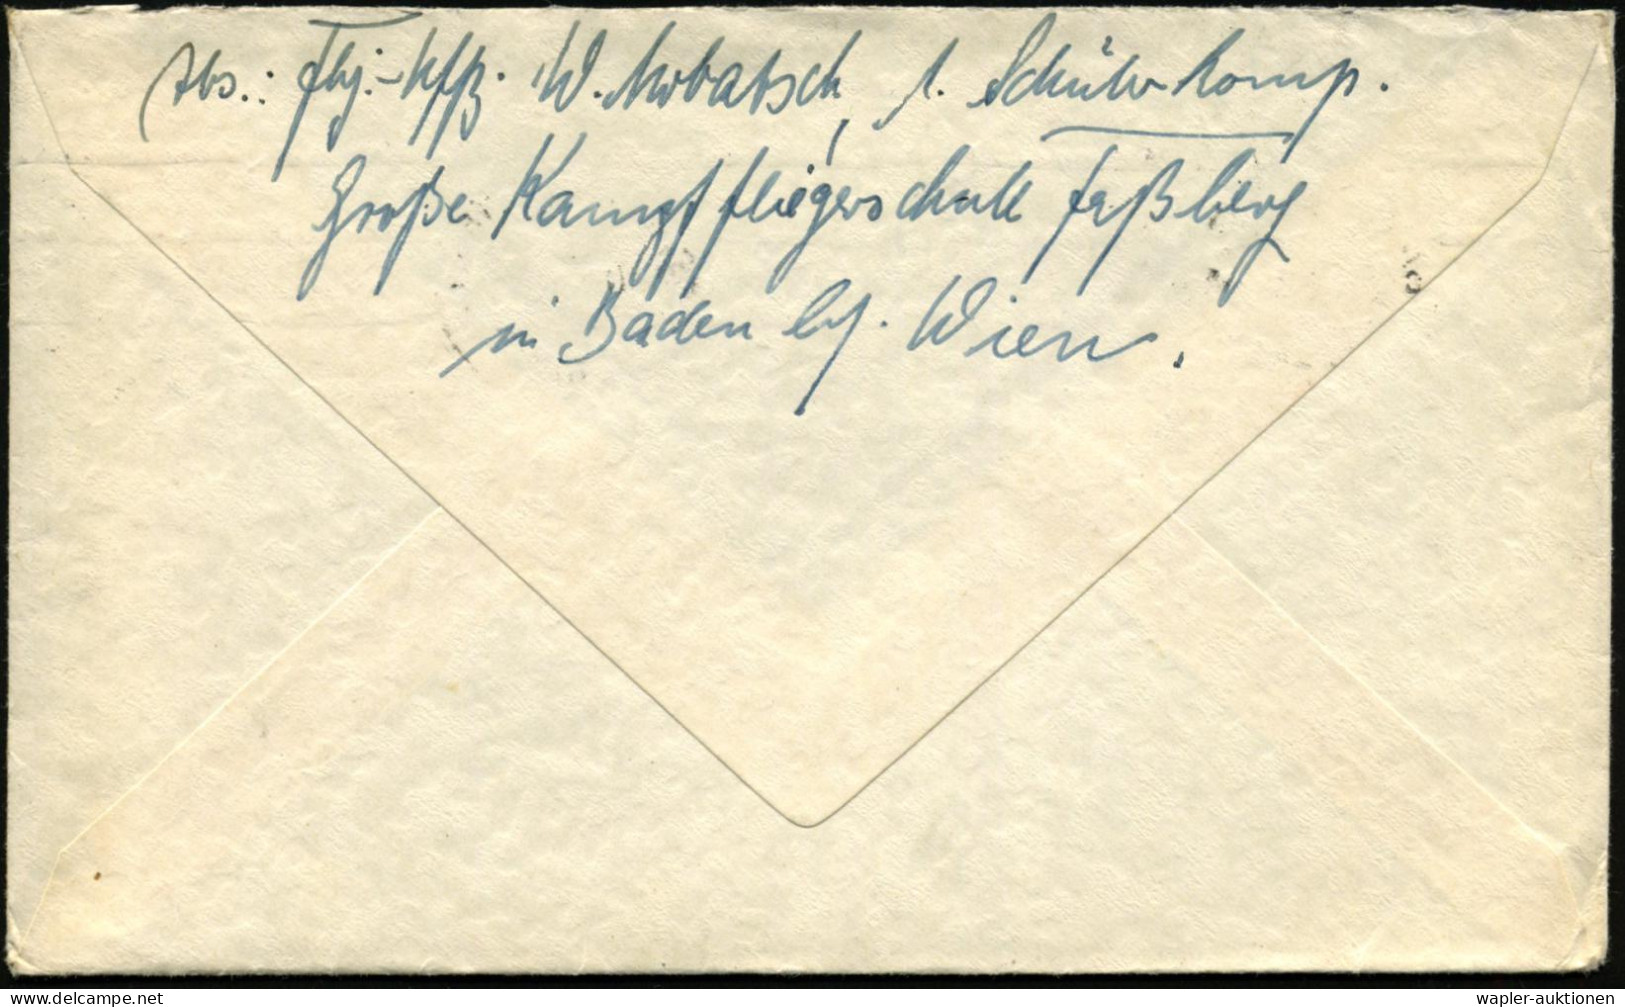 Abs.: Fhj.-Uffz. W. Mrbatsch, 1. Schülerkomp.
Große Kampffliegerschule Faßberg
in Baden b/. Wien.
delcampe.net
wapler-auktionen